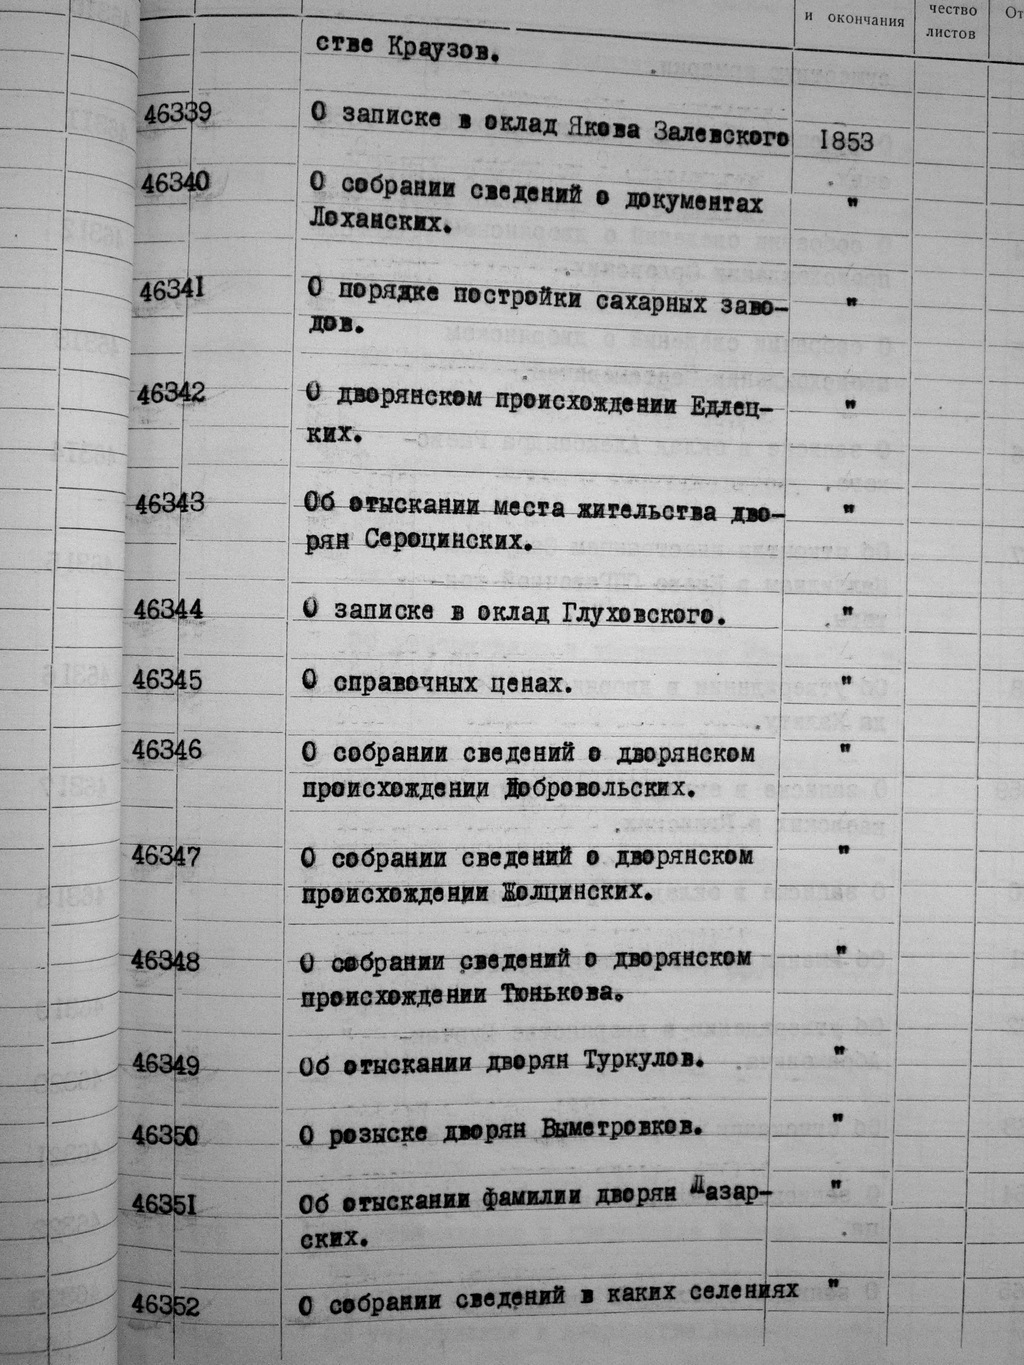 и окончания
чество
листов
От
стве Краузов.
46339 О записке в оклад Якова Залевского 1853
46340 О собрании сведений о документах "
Лоханских.
46341 О порядке постройки сахарных заво-
"
дов.
46342 О дворянском происхождении Едлец- "
ких.
46343 Об отыскании места жительства дво- "
рян Сероцинских.
46344 О записке в оклад Глуховского. "
46345 О справочных ценах. "
46346 О собрании сведений о дворянском "
происхождении Добровольских.
46347 О собрании сведений о дворянском "
происхождении Холцинских.
46348 О собрании сведений о дворянском "
происхождении Тюнькова.
46349 Об отыскании дворян Туркулов. "
46350 О розыске дворян Выметровков. "
46351 Об отыскании фамилии дворян Лазар- "
ских.
46352 О собрании сведений в каких селениях "